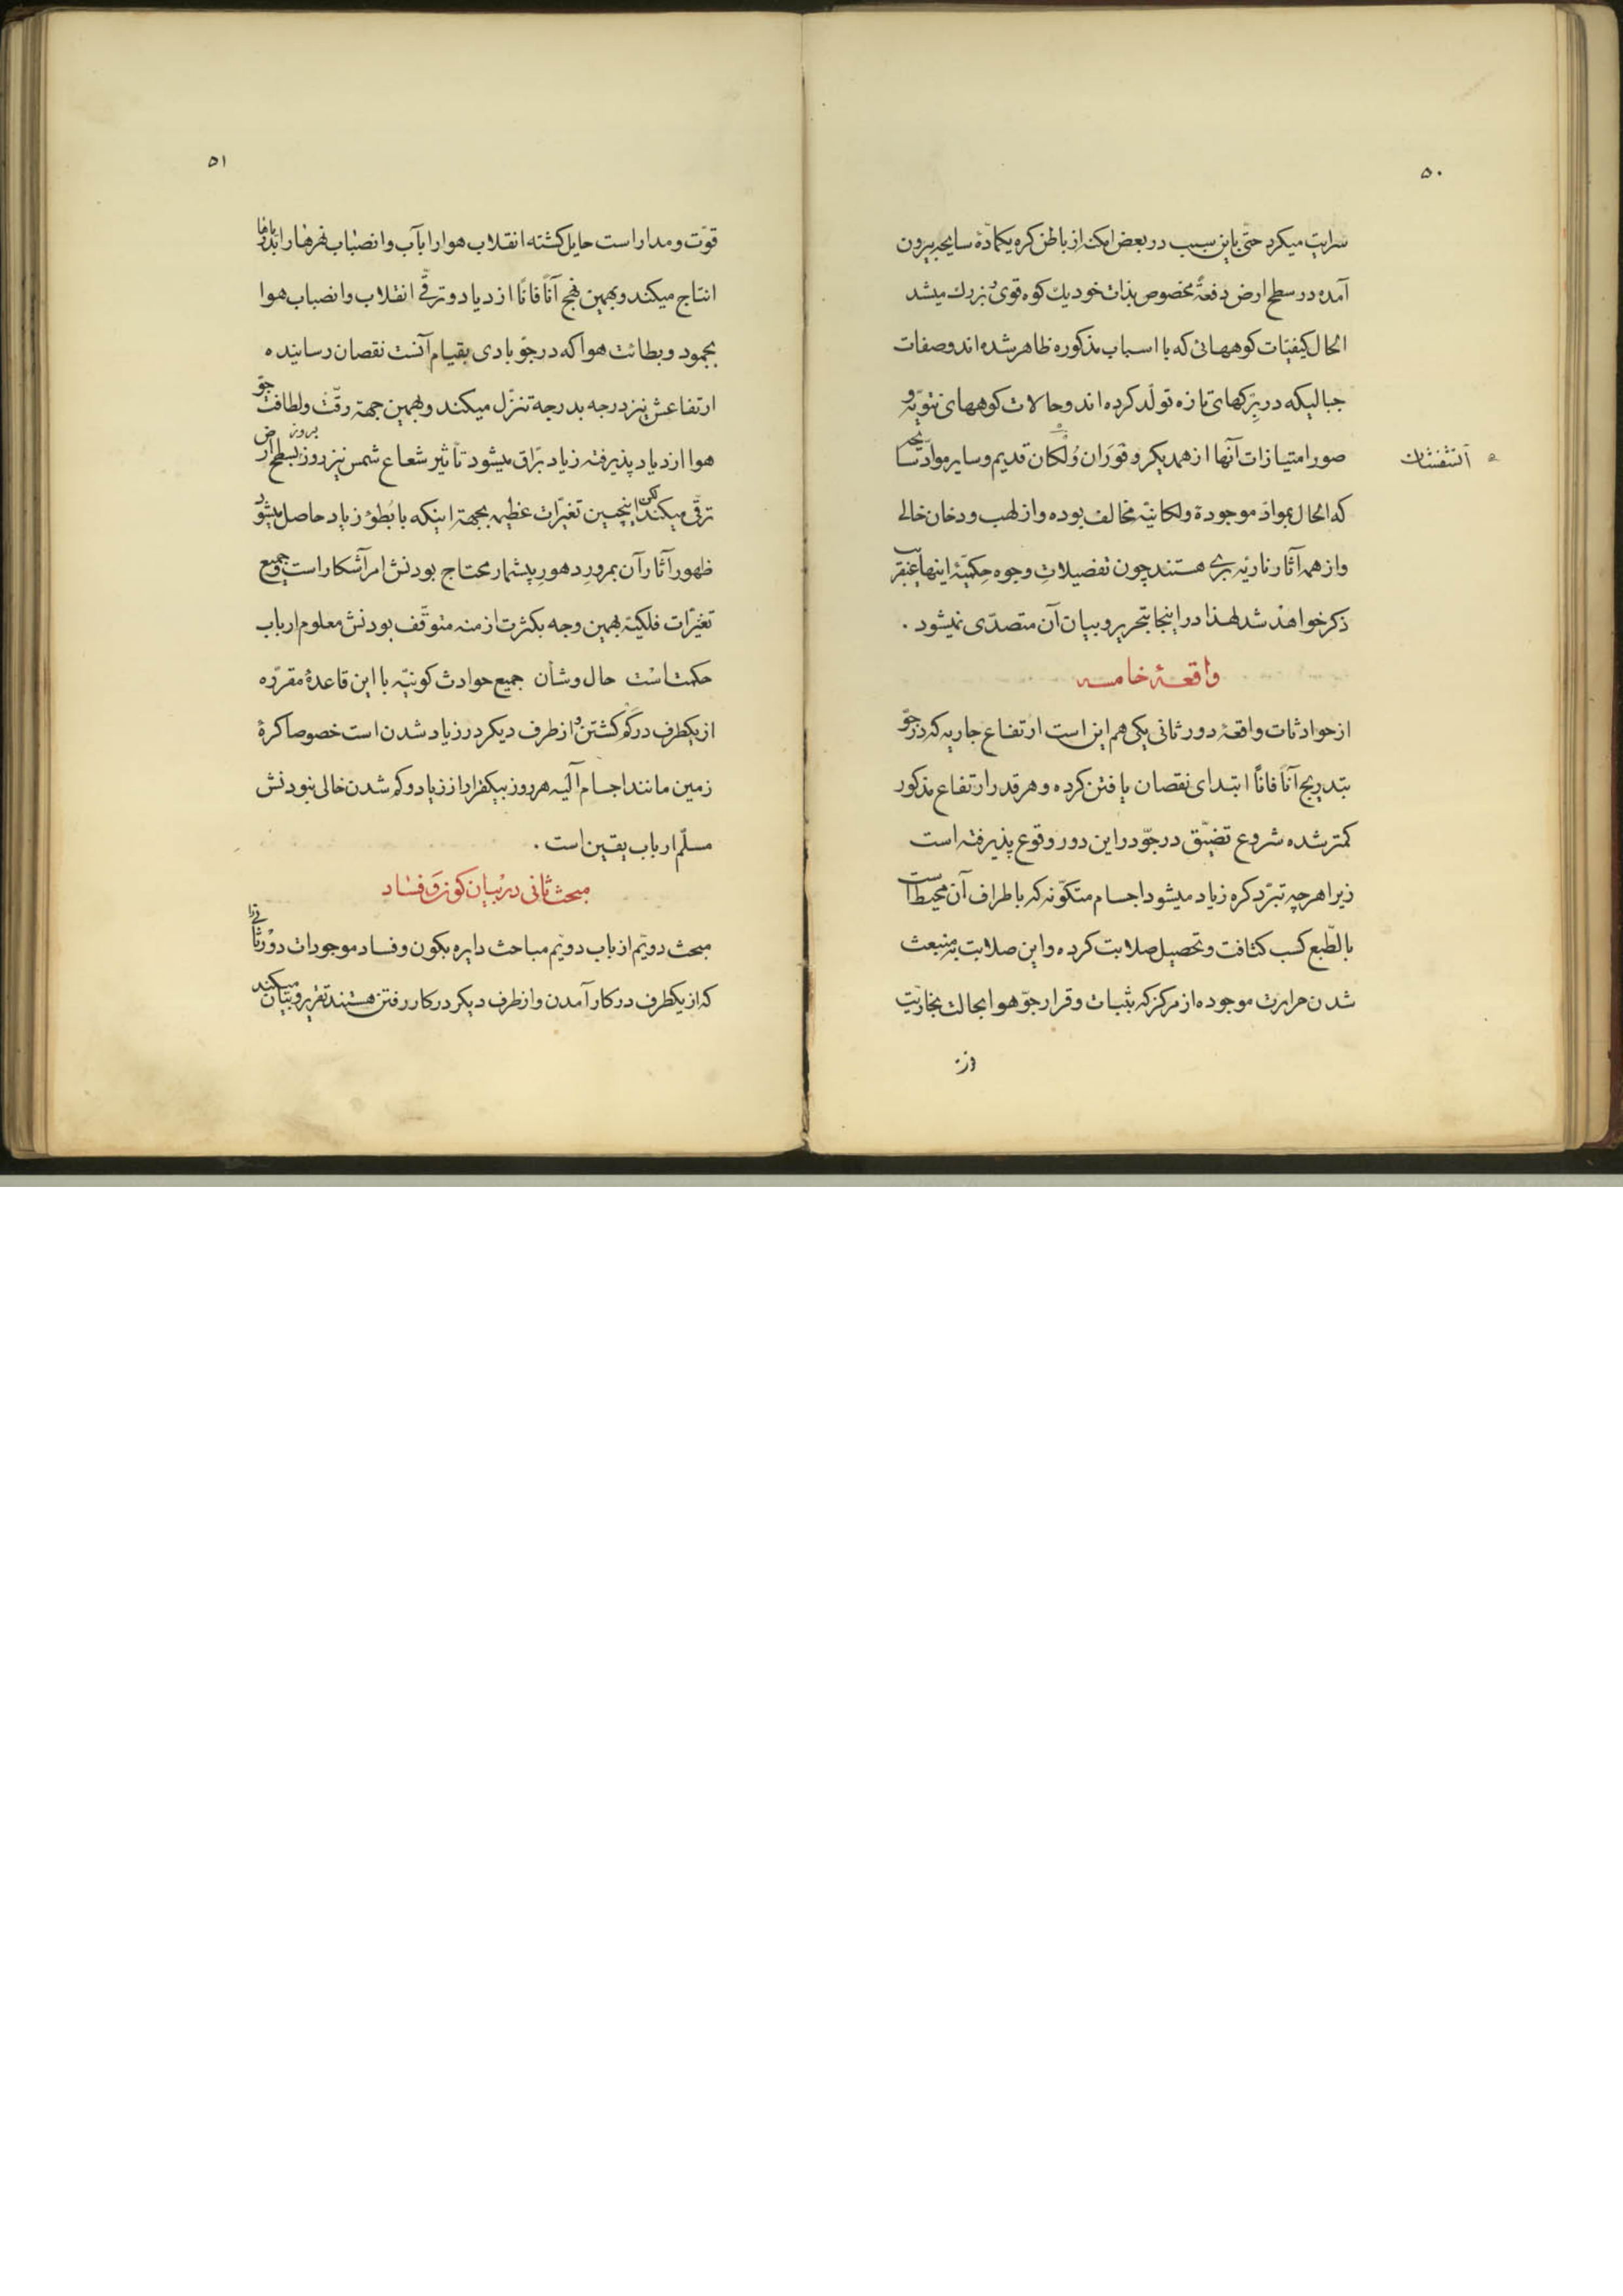 ۵۰
سرایت میکرد حتی باین سبب در بعض امکنه از باطن کره یکمادّهٔ سایحه بیرون
آمده در سطح ارض دفعةً مخصوص بذات خود یك کوه قوی بزرك میشد
الحال کیفیّات کوههائی که با اسباب مذکوره ظاهر شده اند و صفات
جبالیکه در بِرکهای تازه تولّد کرده اند و حالات کوههای نتویّه و
صور امتیازات آنها از همدیکر و فَوَران وُلکان قدیم و سایر موادّ
آتشفشان
که الحال بموادّ موجودهٔ ولکانیّه مخالف بوده و از لهب و دخان خالے
و از همه آثار ناریّه بری هستند چون تفصیلاتِ وجوه حِکمیّهٔ اینها عنقریب
ذکر خواهند شد لهذا در اینجا بتحریر و بیان آن متصدّی نمیشود .
واقعهٔ خامسه
از حوادثات واقعهٔ دور ثانی یکی هم این است ارتفاع جاریه که در جوّ
بتدریج آناً فاناً ابتدای نقصان یافتن کرده و هر قدر ارتفاع مذکور
کمتر شده شروع تضیّق در جوّ در این دور وقوع پذیرفته است
زیرا هر چه تبرّد کره زیاد میشود اجسام متکوّنه که باطراف آن محیط است
بالطّبع کسب کثافت و تحصیل صلابت کرده و این صلابت به منبعث
شدن حرارت موجوده از مرکز که بثبات و قرار جوّ هوا بحالت بخاریّت
۵۱
قوّت و مدار است حایل کشته انقلاب هوا را بآب و انصباب نهرها را بدریاها
انتاج میکند و بهمین نهج آناً فاناً ازدیاد و ترقّے انقلاب و انصباب هوا
بجمود و بطائت هوا که در جوّ بادی بقیام آنست نقصان رسانیده
ارتفاعش نیز درجه بدرجه تنزّل میکند و بهمین جهة رقّت و لطافت جوّ
هوا ازدیاد پذیرفته زیاد برّاق میشود تأثیر شعاع شمس نیز روز بروز بسطح ارض
ترقّی میکند لکن اینچنین تغیّرات عظیمه بجهة اینکه با بُطوء زیاد حاصل میشود
ظهور آثار آن بمرورِ دهورِ بیشمار محتاج بودنش امر آشکار است و جمیع
تغیّرات فلکیّه بهمین وجه بکثرت ازمنه متوقّف بودنش معلوم ارباب
حکمت است حال و شأن جمیع حوادث کونیّه با این قاعدهٔ مقرّره
از یکطرف در کم کشتن و از طرف دیکر در زیاد شدن است خصوصا کرهٔ
زمین مانند اجسام آلیّه هر روز بیکقرار از زیاد و کم شدن خالی نبودنش
مسلّم ارباب یقین است .
مبحث ثانی در بیان کون و فساد
مبحث دویّم از باب دویّم مباحث دایره بکون و فساد موجودات دور ثانی
که از یکطرف در کار آمدن و از طرف دیکر در کار رفتن هستند تقریر و بیان میکند